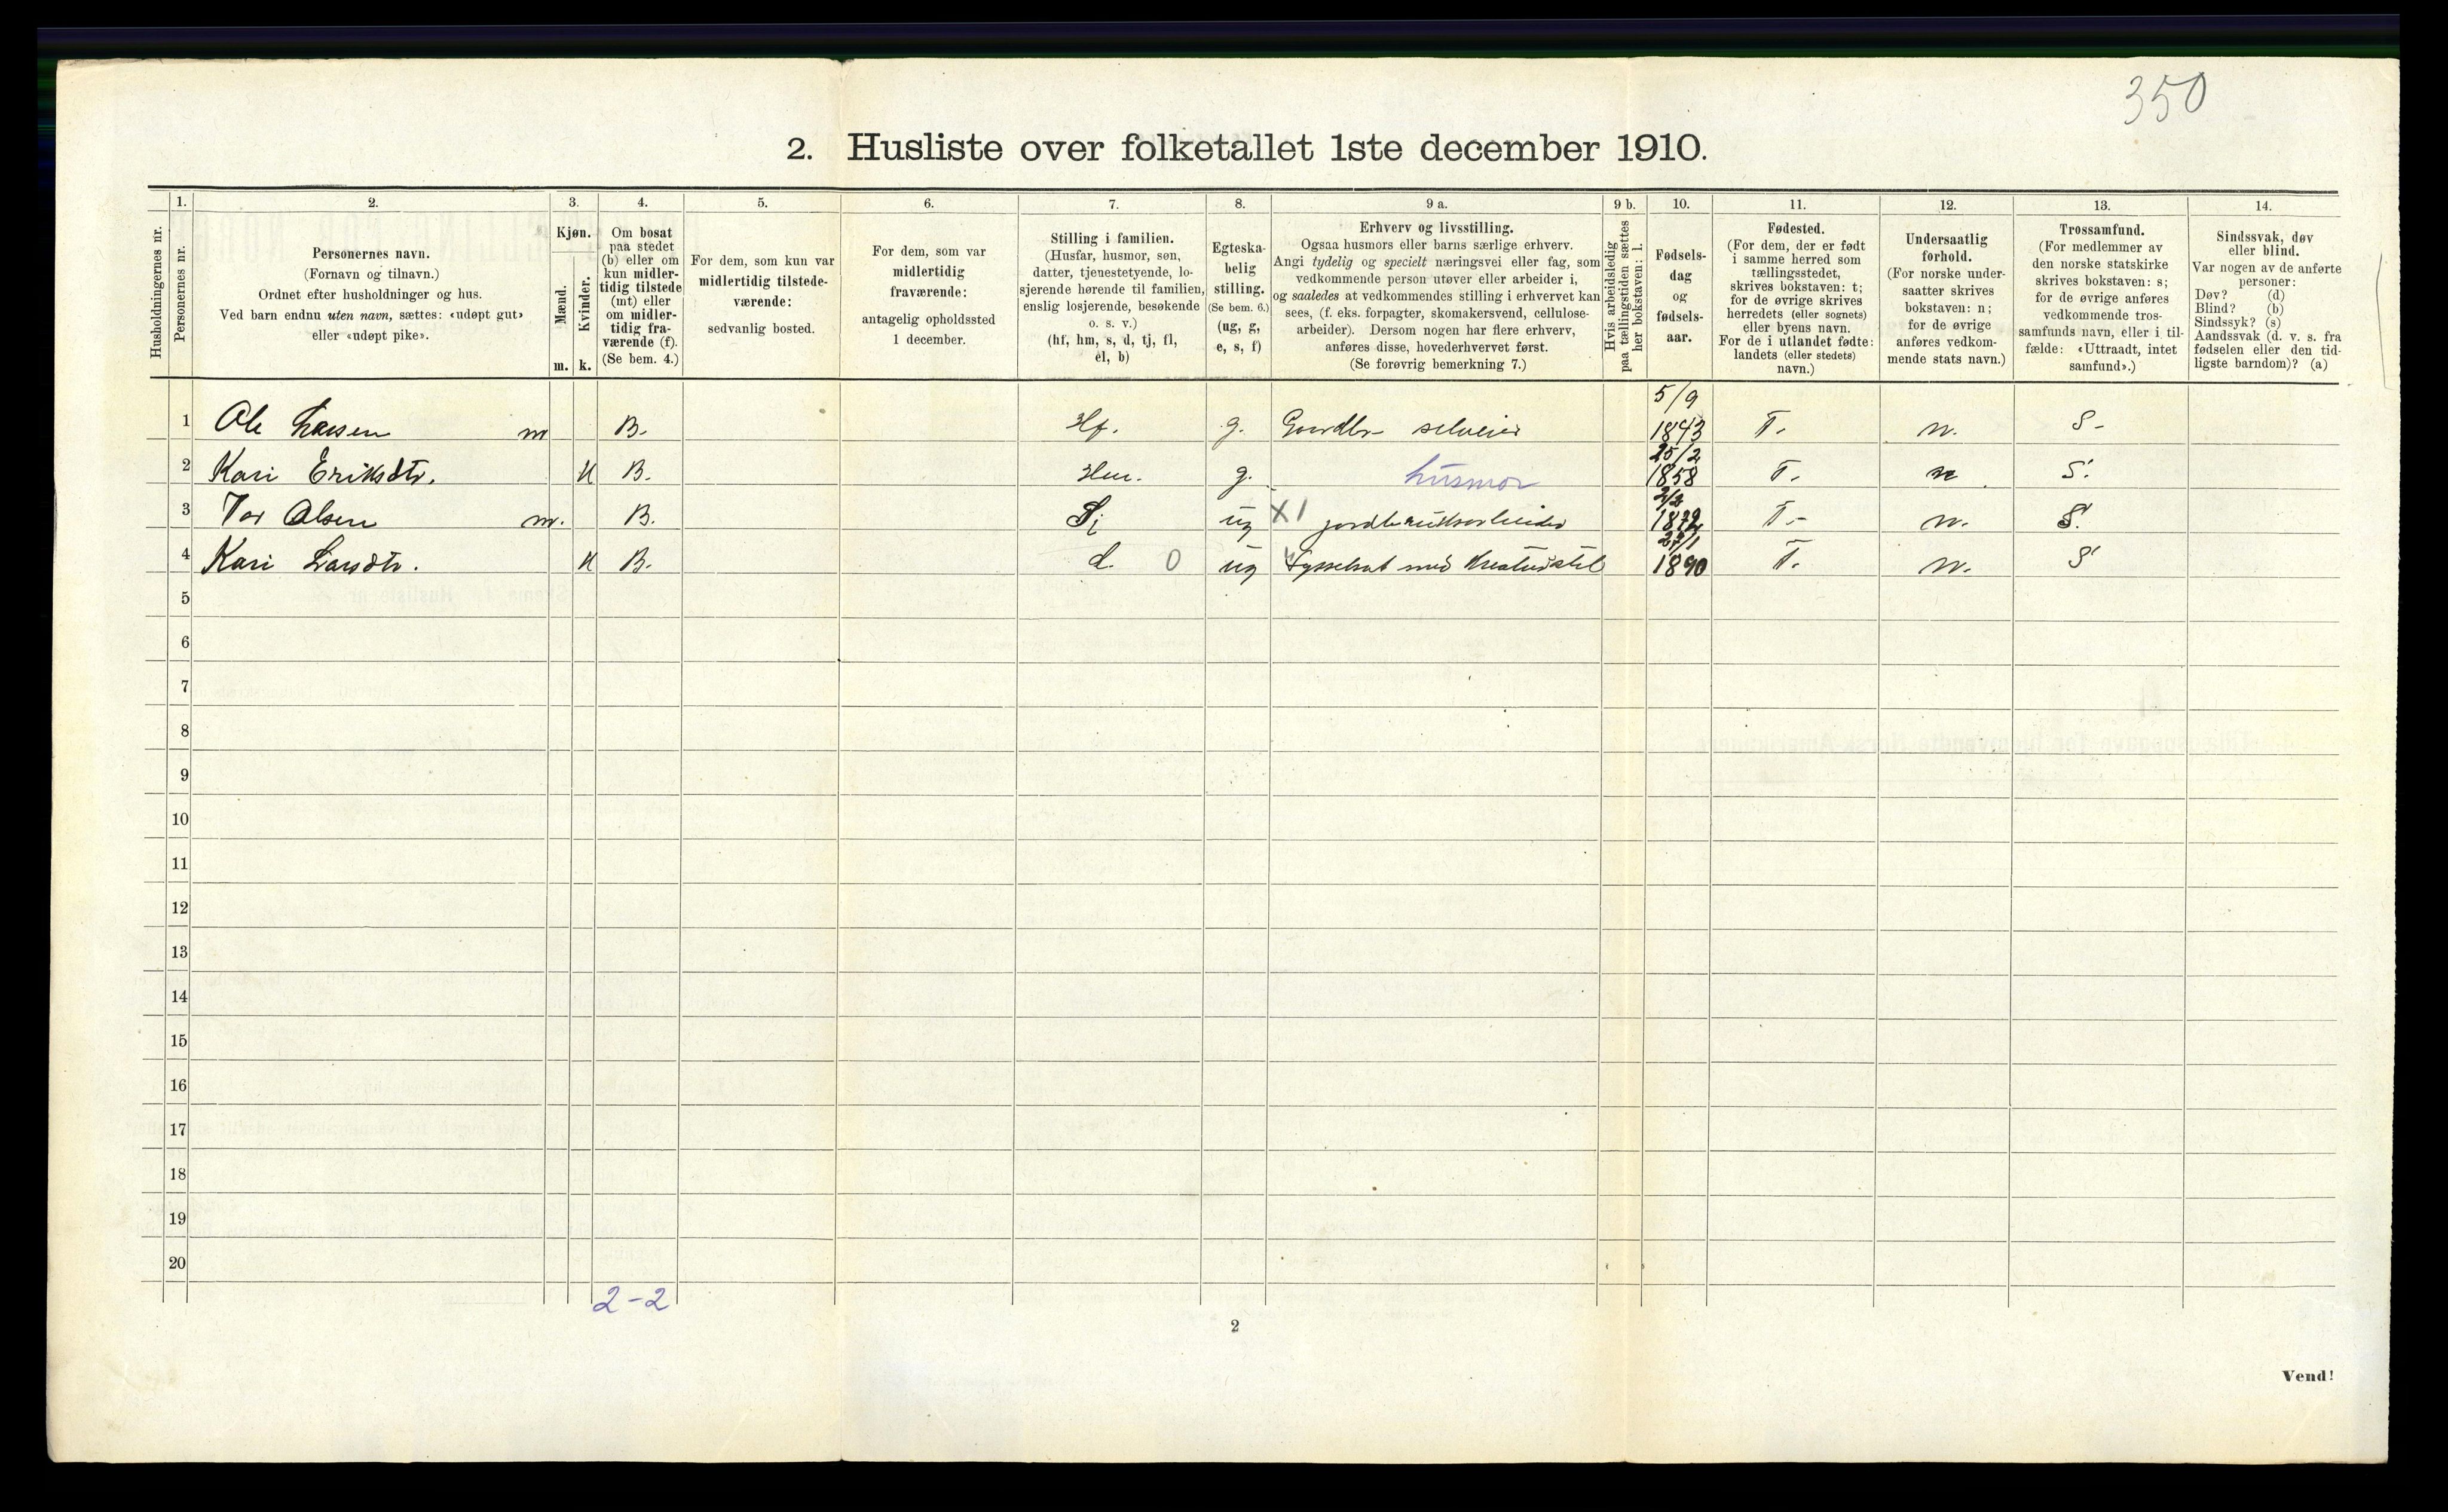 350
2. Husliste over folketallet 1ste december 1910.
Husholdningernes nr.
1.
Personernes nr.
2.
Personernes navn.
(Fornavn og tilnavn.)
Ordnet efter husholdninger og hus.
Ved barn endnu uten navn, sættes: «udøpt gut»
eller «udøpt pike».
3.
Kjøn.
Mænd.
Kvinder.
m. k.
4.
Om bosat
paa stedet
(b) eller om
kun midler-
tidig tilstede
(mt) eller
om midler-
tidig fra-
værende (f).
(Se bem. 4.)
5.
For dem, som kun var
midlertidig tilstede-
værende:
sedvanlig bosted.
6.
For dem, som var
midlertidig
fraværende:
antagelig opholdssted
1 december.
7.
Stilling i familien.
(Husfar, husmor, søn,
datter, tjenestetyende, lo-
sjerende hørende til familien,
enslig losjerende, besøkende
o. s. v.)
(hf, hm, s, d, tj, fl,
el, b)
8.
Egteska-
belig
stilling.
(Se bem. 6.)
(ug, g,
e, s, f)
9 a.
Erhverv og livsstilling.
Ogsaa husmors eller barns særlige erhverv.
Angi tydelig og specielt næringsvei eller fag, som
vedkommende person utøver eller arbeider i,
og saaledes at vedkommendes stilling i erhvervet kan
sees, (f. eks. forpagter, skomakersvend, cellulose-
arbeider). Dersom nogen har flere erhverv,
anføres disse, hovederhvervet først.
(Se forøvrig bemerkning 7.)
9 b.
Hvis arbeidsledig
paa tællingstiden sættes
her bokstaven: l.
10.
Fødsels-
dag
og
fødsels-
aar.
11.
Fødested.
(For dem, der er født
i samme herred som
tællingsstedet,
skrives bokstaven: t;
for de øvrige skrives
herredets (eller sognets)
eller byens navn.
For de i utlandet fødte:
landets (eller stedets)
navn.)
12.
Undersaatlig
forhold.
(For norske under-
saatter skrives
bokstaven: n;
for de øvrige
anføres vedkom-
mende stats navn.)
13.
Trossamfund.
(For medlemmer av
den norske statskirke
skrives bokstaven: s;
for de øvrige anføres
vedkommende tros-
samfunds navn, eller i til-
fælde: «Uttraadt, intet
samfund».)
14.
Sindssvak, døv
eller blind.
Var nogen av de anførte
personer:
Døv? (d)
Blind? (b)
Sindssyk? (s)
Aandssvak (d. v. s. fra
fødselen eller den tid-
ligste barndom)? (a)
1 Ole Larsen m B. Hf. g. Gaardbr selveier 5/9 1843 T. n. S-
2 Kari Eriksdtr. K B. Hm. g. husmor 25/2 1858 T. n. S.
3 Tor Olsen m. B. ug X1 jordbruksarbeider 1872 T- n. S.
4 Kari Larsdtr. K B. d. 0 ug Sysselsat med Kreaturstel 27/1 1890 T. n. S
5
6
7
8
9
10
11
12
13
14
15
16
17
18
19
20
2-2
2
Vend!